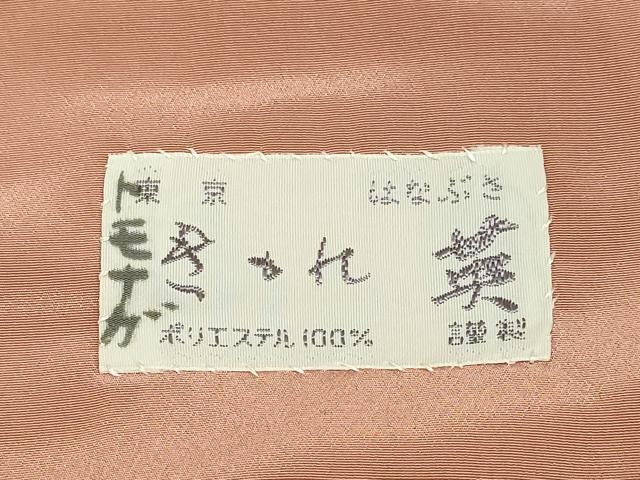 トモナガ
東京 はなぶさ
英
ポリエステル100% 謹製